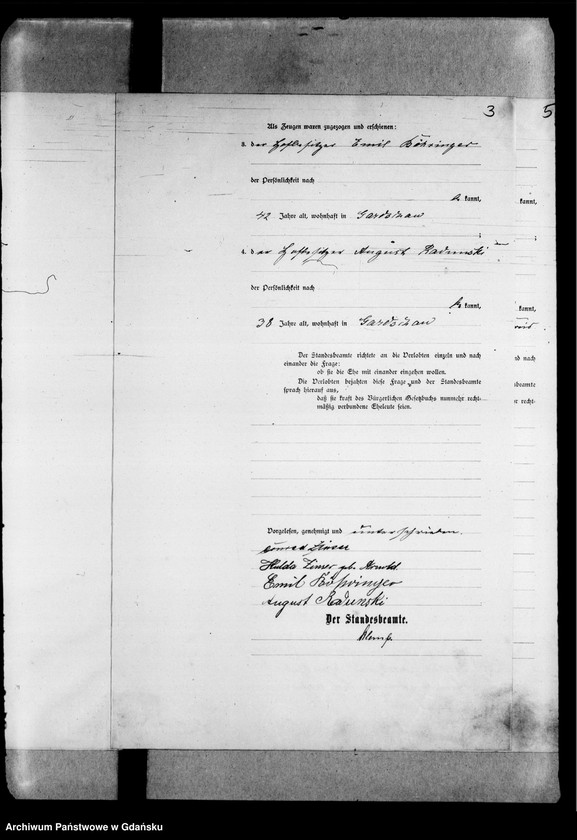 3
5
Als Zeugen waren zugezogen und erschienen:
3. der Hofbesitzer Emil Böhringer
der Persönlichkeit nach
be kannt,
42 Jahre alt, wohnhaft in Gardschau
4. der Hofbesitzer August Radunski
der Persönlichkeit nach
be kannt,
38 Jahre alt, wohnhaft in Gardschau
Der Standesbeamte richtete an die Verlobten einzeln und nach
einander die Frage:
ob sie die Ehe mit einander eingehen wollen.
Die Verlobten bejahten diese Frage und der Standesbeamte
sprach hierauf aus,
daß sie kraft des Bürgerlichen Gesetzbuchs nunmehr recht-
mäßig verbundene Eheleute seien.
Vorgelesen, genehmigt und unterschrieben.
Hulda geb.
Emil Böhringer
August Radunski
Der Standesbeamte.
kannt,
kannt,
nd nach
sbeamte
r recht-
Archiwum Państwowe w Gdańsku